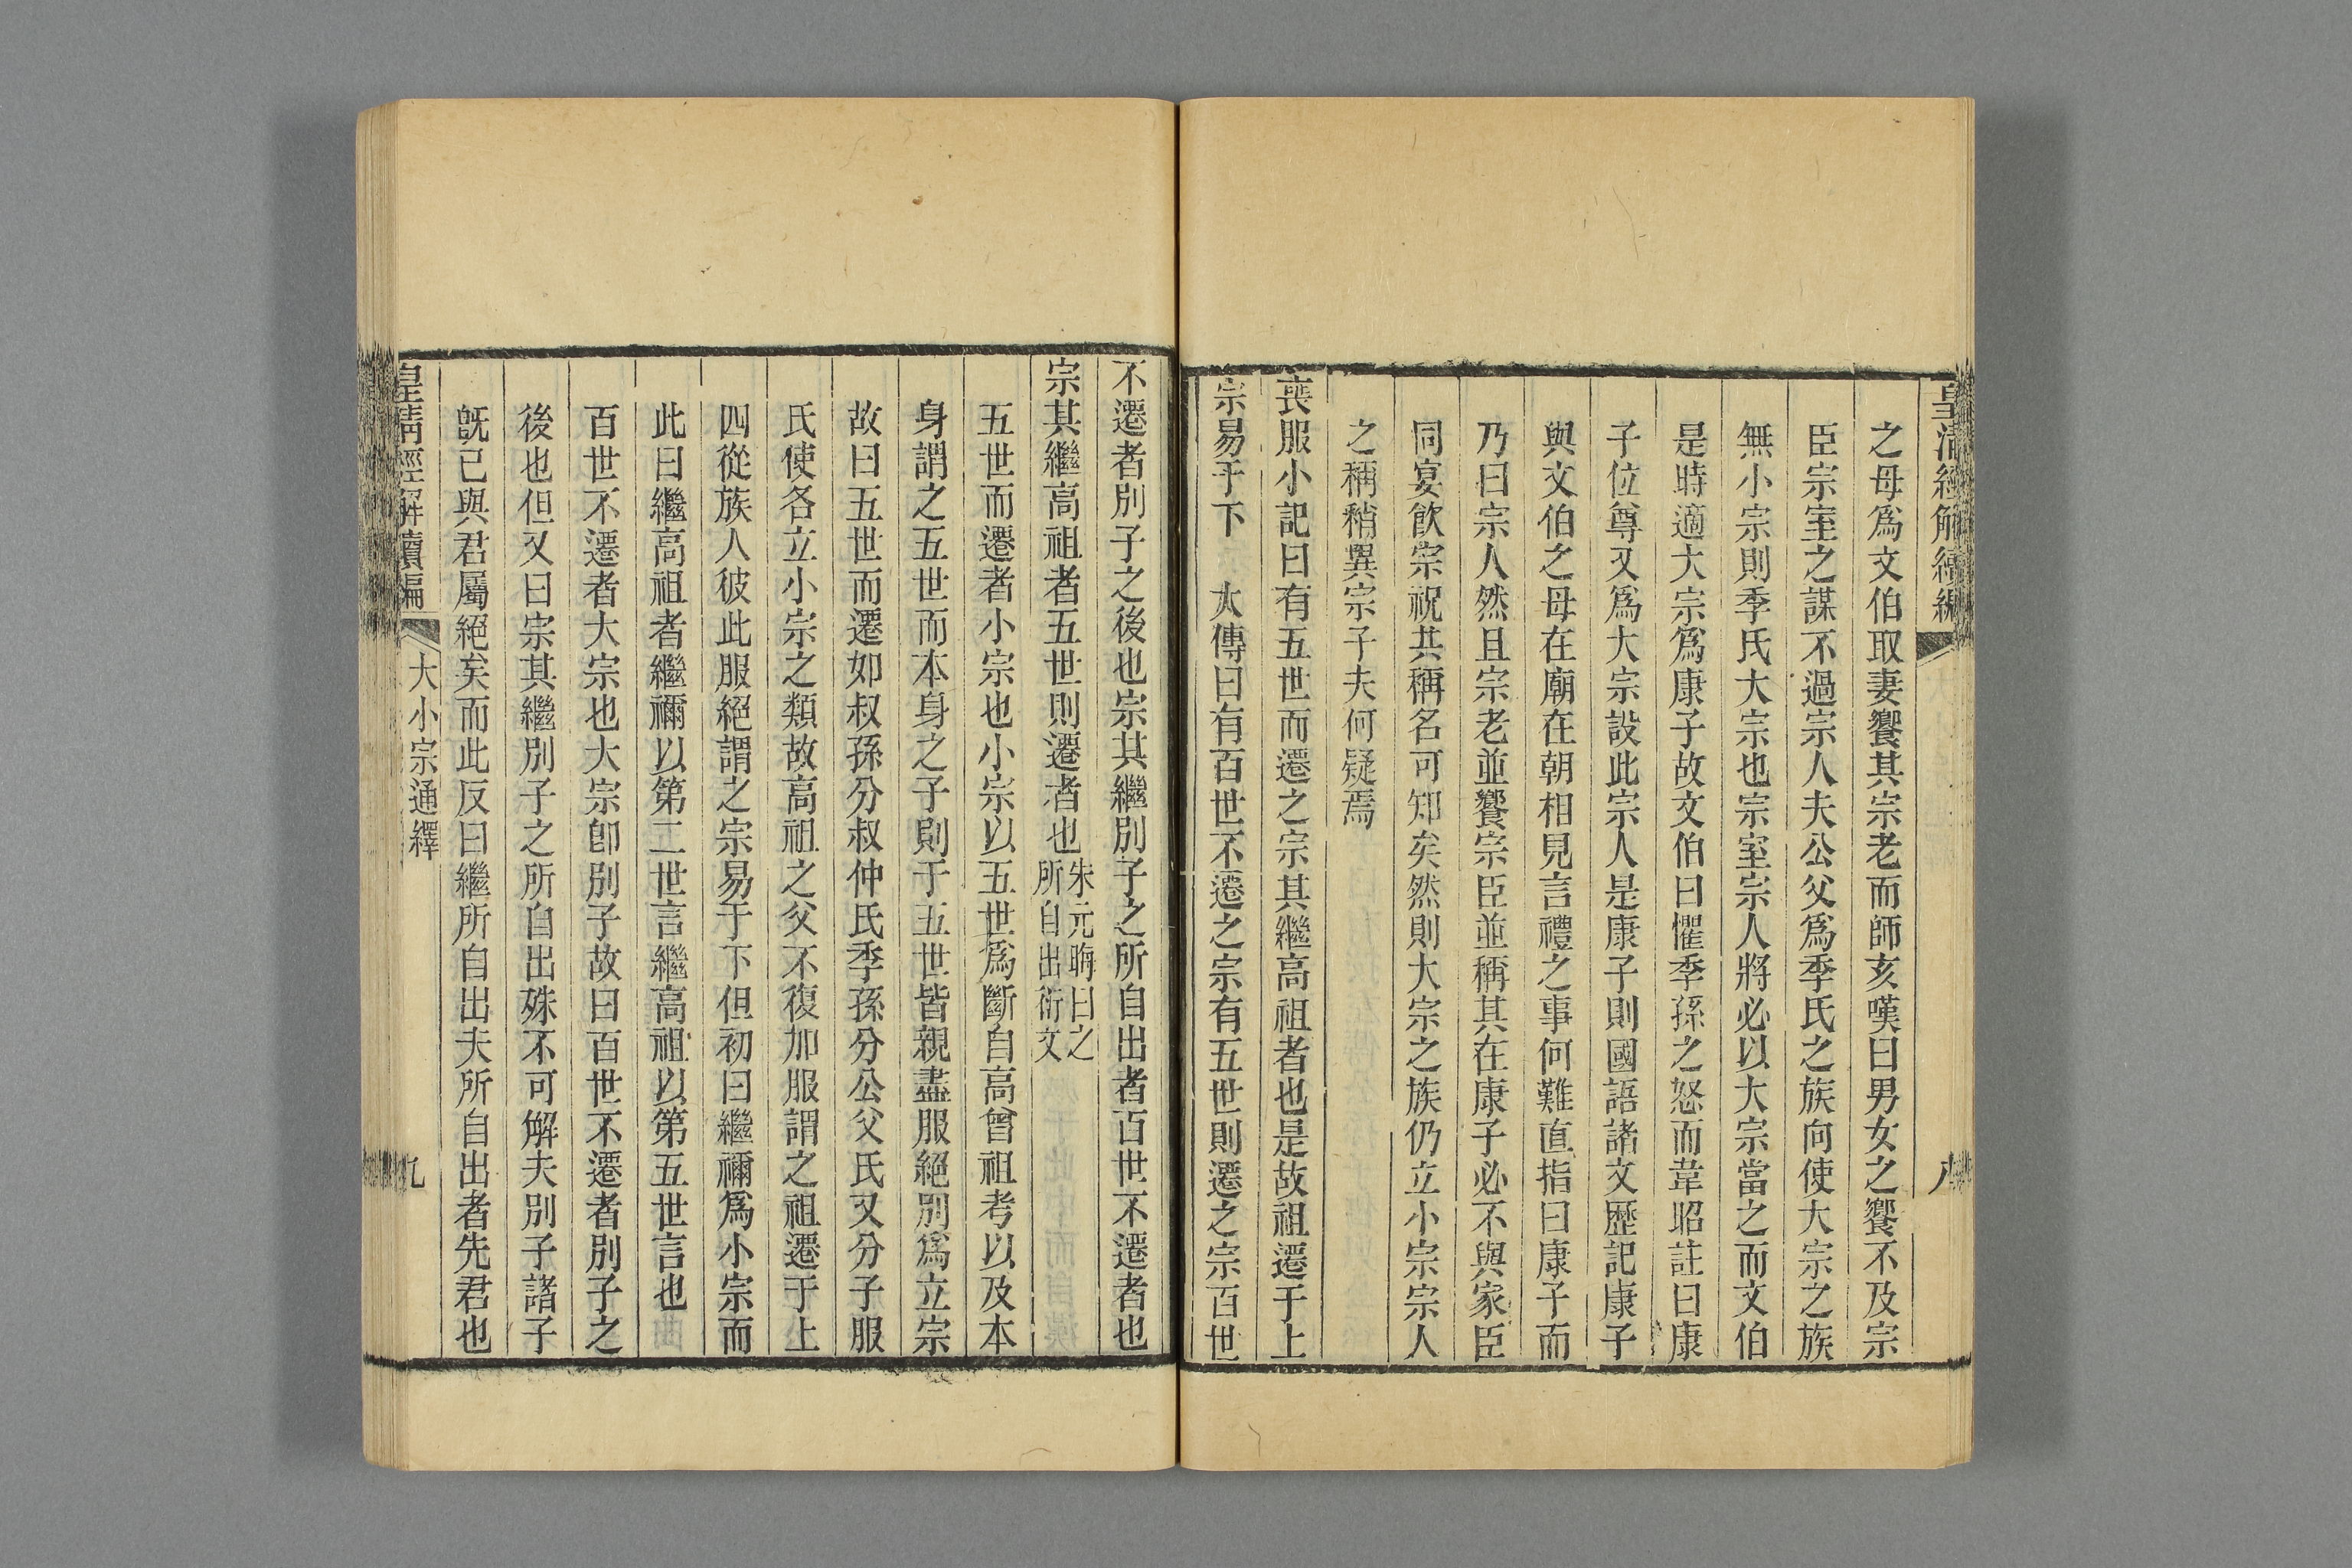 皇清經解續編
八
之母爲文伯取妻饗其宗老而師亥嘆曰男女之饗不及宗
臣宗室之謀不過宗人夫公父爲季氏之族向使大宗之族
無小宗則季氏大宗也宗室宗人將必以大宗當之而文伯
是時適大宗爲康子故文伯曰懼季孫之怒而韋昭註曰康
子位尊又爲大宗設此宗人是康子則國語諸文歷記康子
與文伯之母在廟在朝相見言禮之事何難直指曰康子而
乃曰宗人然且宗老並饗宗臣並稱其在康子必不與家臣
同宴飲宗祝其稱名可知矣然則大宗之族仍立小宗宗人
之稱稍異宗子夫何疑焉
喪服小記曰有五世而遷之宗其繼高祖者也是故祖遷于上
宗易于下　大傳曰有百世不遷之宗有五世則遷之宗百世
不遷者別子之後也宗其繼別子之所自出者百世不遷者也
宗其繼高祖者五世則遷者也朱元晦曰之
所自出衍文
五世而遷者小宗也小宗以五世爲斷自高曾祖考以及本
身謂之五世而本身之子則于五世皆親盡服絕別爲立宗
故曰五世而遷如叔孫分叔仲氏季孫分公父氏又分子服
氏使各立小宗之類故高祖之父不復加服謂之祖遷于上
四從族人彼此服絕謂之宗易于下但初曰繼禰爲小宗而
此曰繼高祖者繼禰以第二世言繼高祖以第五世言也
百世不遷者大宗也大宗卽別子故曰百世不遷者別子之
後也但又曰宗其繼別子之所自出殊不可解夫別子諸子
旣已與君屬絕矣而此反曰繼所自出夫所自出者先君也
皇清經解續編
大小宗通繹
九